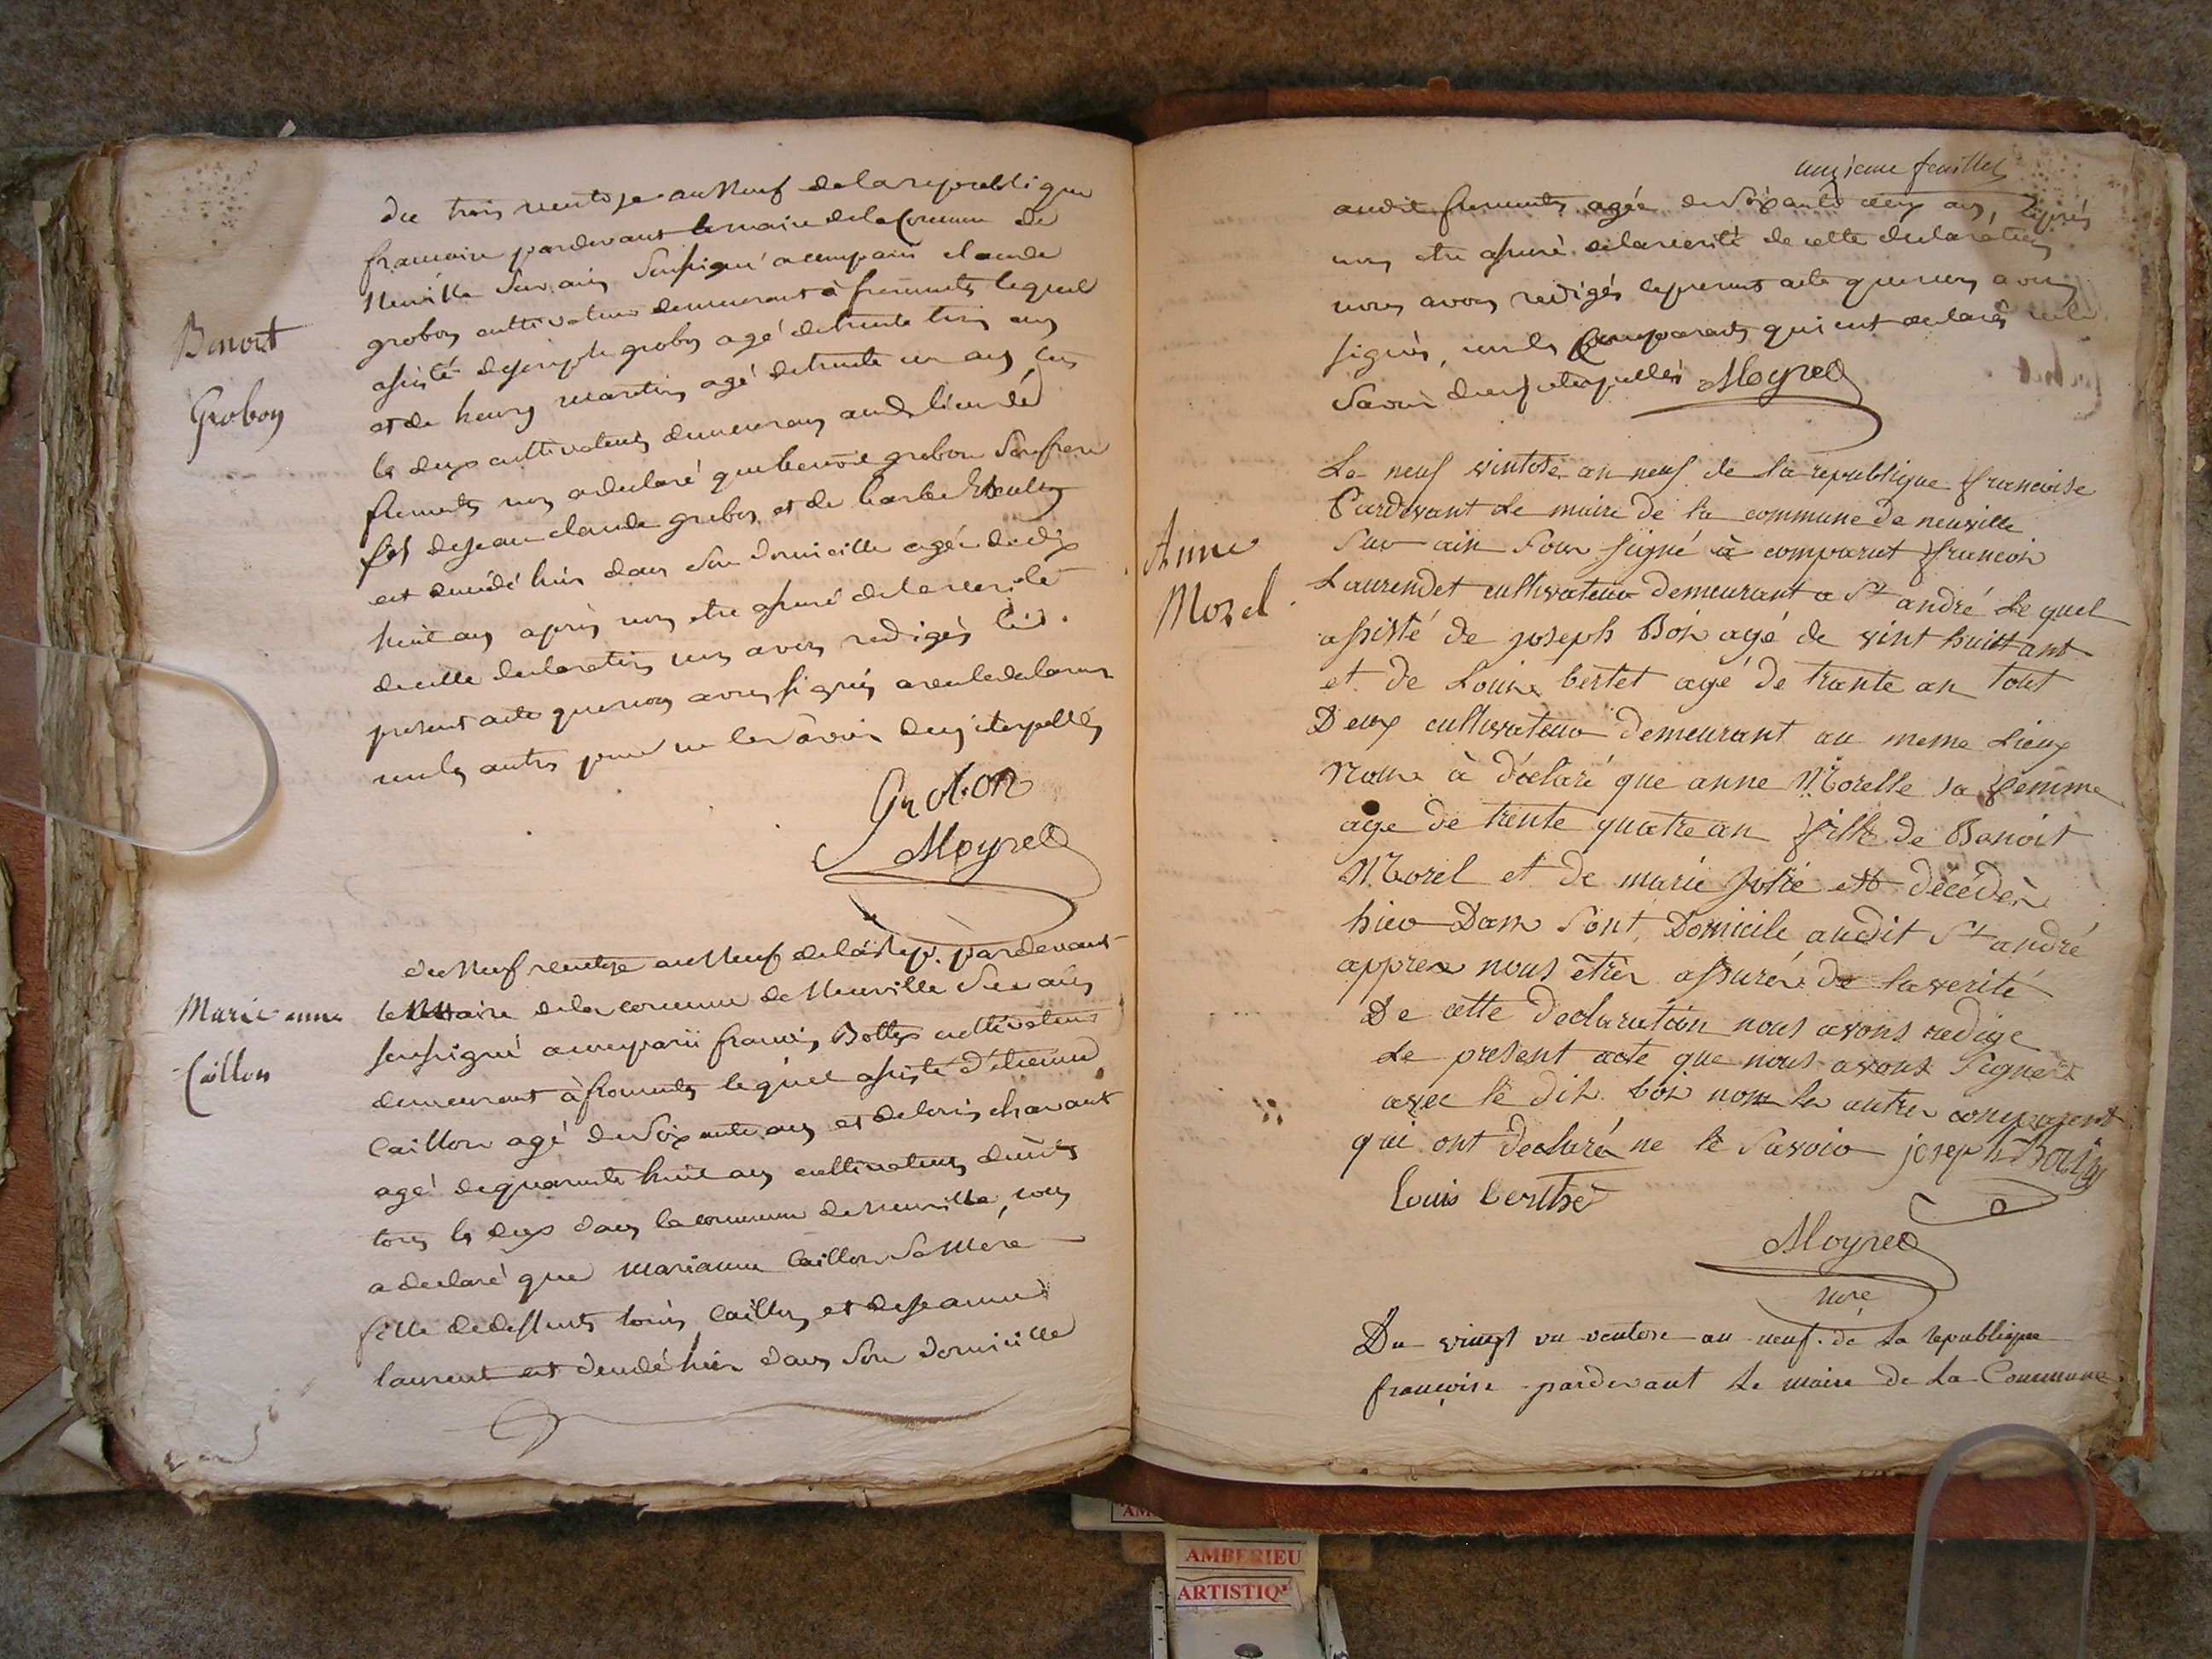 Benoit
Grobon
du trois ventose an Neuf de la republique
francaise pardevant le maire de la Commune de
Neuville Sur ain Soussigné a comparu claude
grobon cultivateur demeurant à froments lequel
assisté de joseph grobon agé de trente trois ans
et de henry martin agé de trente un ans tous
les deux cultivateurs demeurans aud. lieu de
froments nous a declaré que benoit grobon Son frere
fils de jean claude grobon et de barbe
est decedé hier dans Son domicille agé de dix
huit ans après nous etre assuré de la verité
de cette declaration nous avons redigés le
present acte que nous avons signés avec le declarant
non les autres pour ne le Savoir de ce interpellés
Grobon
Moyret
Marie anne
Caillon
du Neuf ventose an Neuf de la rep. pardevant
le Maire de la commune de Neuville Sur ain
soussigné a comparu francois Bottex cultivateur
demeurant à froments lequel assisté d'étienne
Caillon agé de Soixante ans et de louis chavant
agé de quarante huit ans cultivateurs
tous les deux dans la commune de Neuville, nous
a declaré que marianne Caillon Sa Mere
fille de deffunts louis Caillon et de jeanne
laurent est decedé hier dans Son domicille
onzieme feuillet
audit froments agée de Soixante deux ans, après
nous etre assuré de la verité de cette declaration
nous avons redigés le present acte que nous avons
signés, non les Comparants qui ont declarés ne le
Savoir de ce interpellés Moyret
Anne
Morel
Le neuf vintose an neuf de la republique francoise
Pardevant Le maire de la commune de neuville
Sur ain Sous signé à comparut francois
Laurendet cultivateur demeurant a St andré Le quel
assisté de joseph Bois agé de vint huitt ans
et de Louis bertet agé de trante an tout
Deux cultivateur demeurant au meme Lieux
Nous à déclaré que anne Morelle sa femme
age de trente quatre an fille de Benoit
Morel et de marie Jolie est décédèe
hier Dans Sont Domicile audit St andré
appres nous êtrèr assurér de la verité
De cette declaration nous avons redige
Le present acte que nous avons Signers
avec le dit bois nom les autres comparent
qui ont declaré ne le Savoir joseph Bois
Louis berthet
Moyret
mre
Du vingt un ventose an neuf de la republique
françoise pardevant le maire de la Commune
AMBERIEU
ARTISTIQ